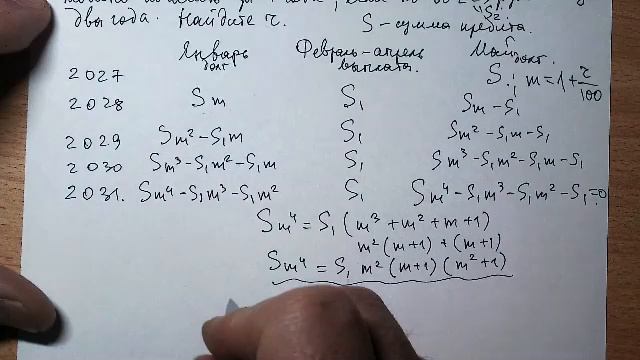 два года. Найдите r. S - сумма кредита.
Январь Февраль-апрель Май
долг выплата. долг.
2027 S ; m = 1 + r/100
2028 Sm S₁ Sm - S₁
2029 Sm² - S₁m S₁ Sm² - S₁m - S₁
2030 Sm³ - S₁m² - S₁m S₁ Sm³ - S₁m² - S₁m - S₁
2031. Sm⁴ - S₁m³ - S₁m² S₁ Sm⁴ - S₁m³ - S₁m² - S₁ = 0
Sm⁴ = S₁ (m³ + m² + m + 1)
m² (m+1) + (m+1)
Sm⁴ = S₁ m² (m+1) (m²+1)